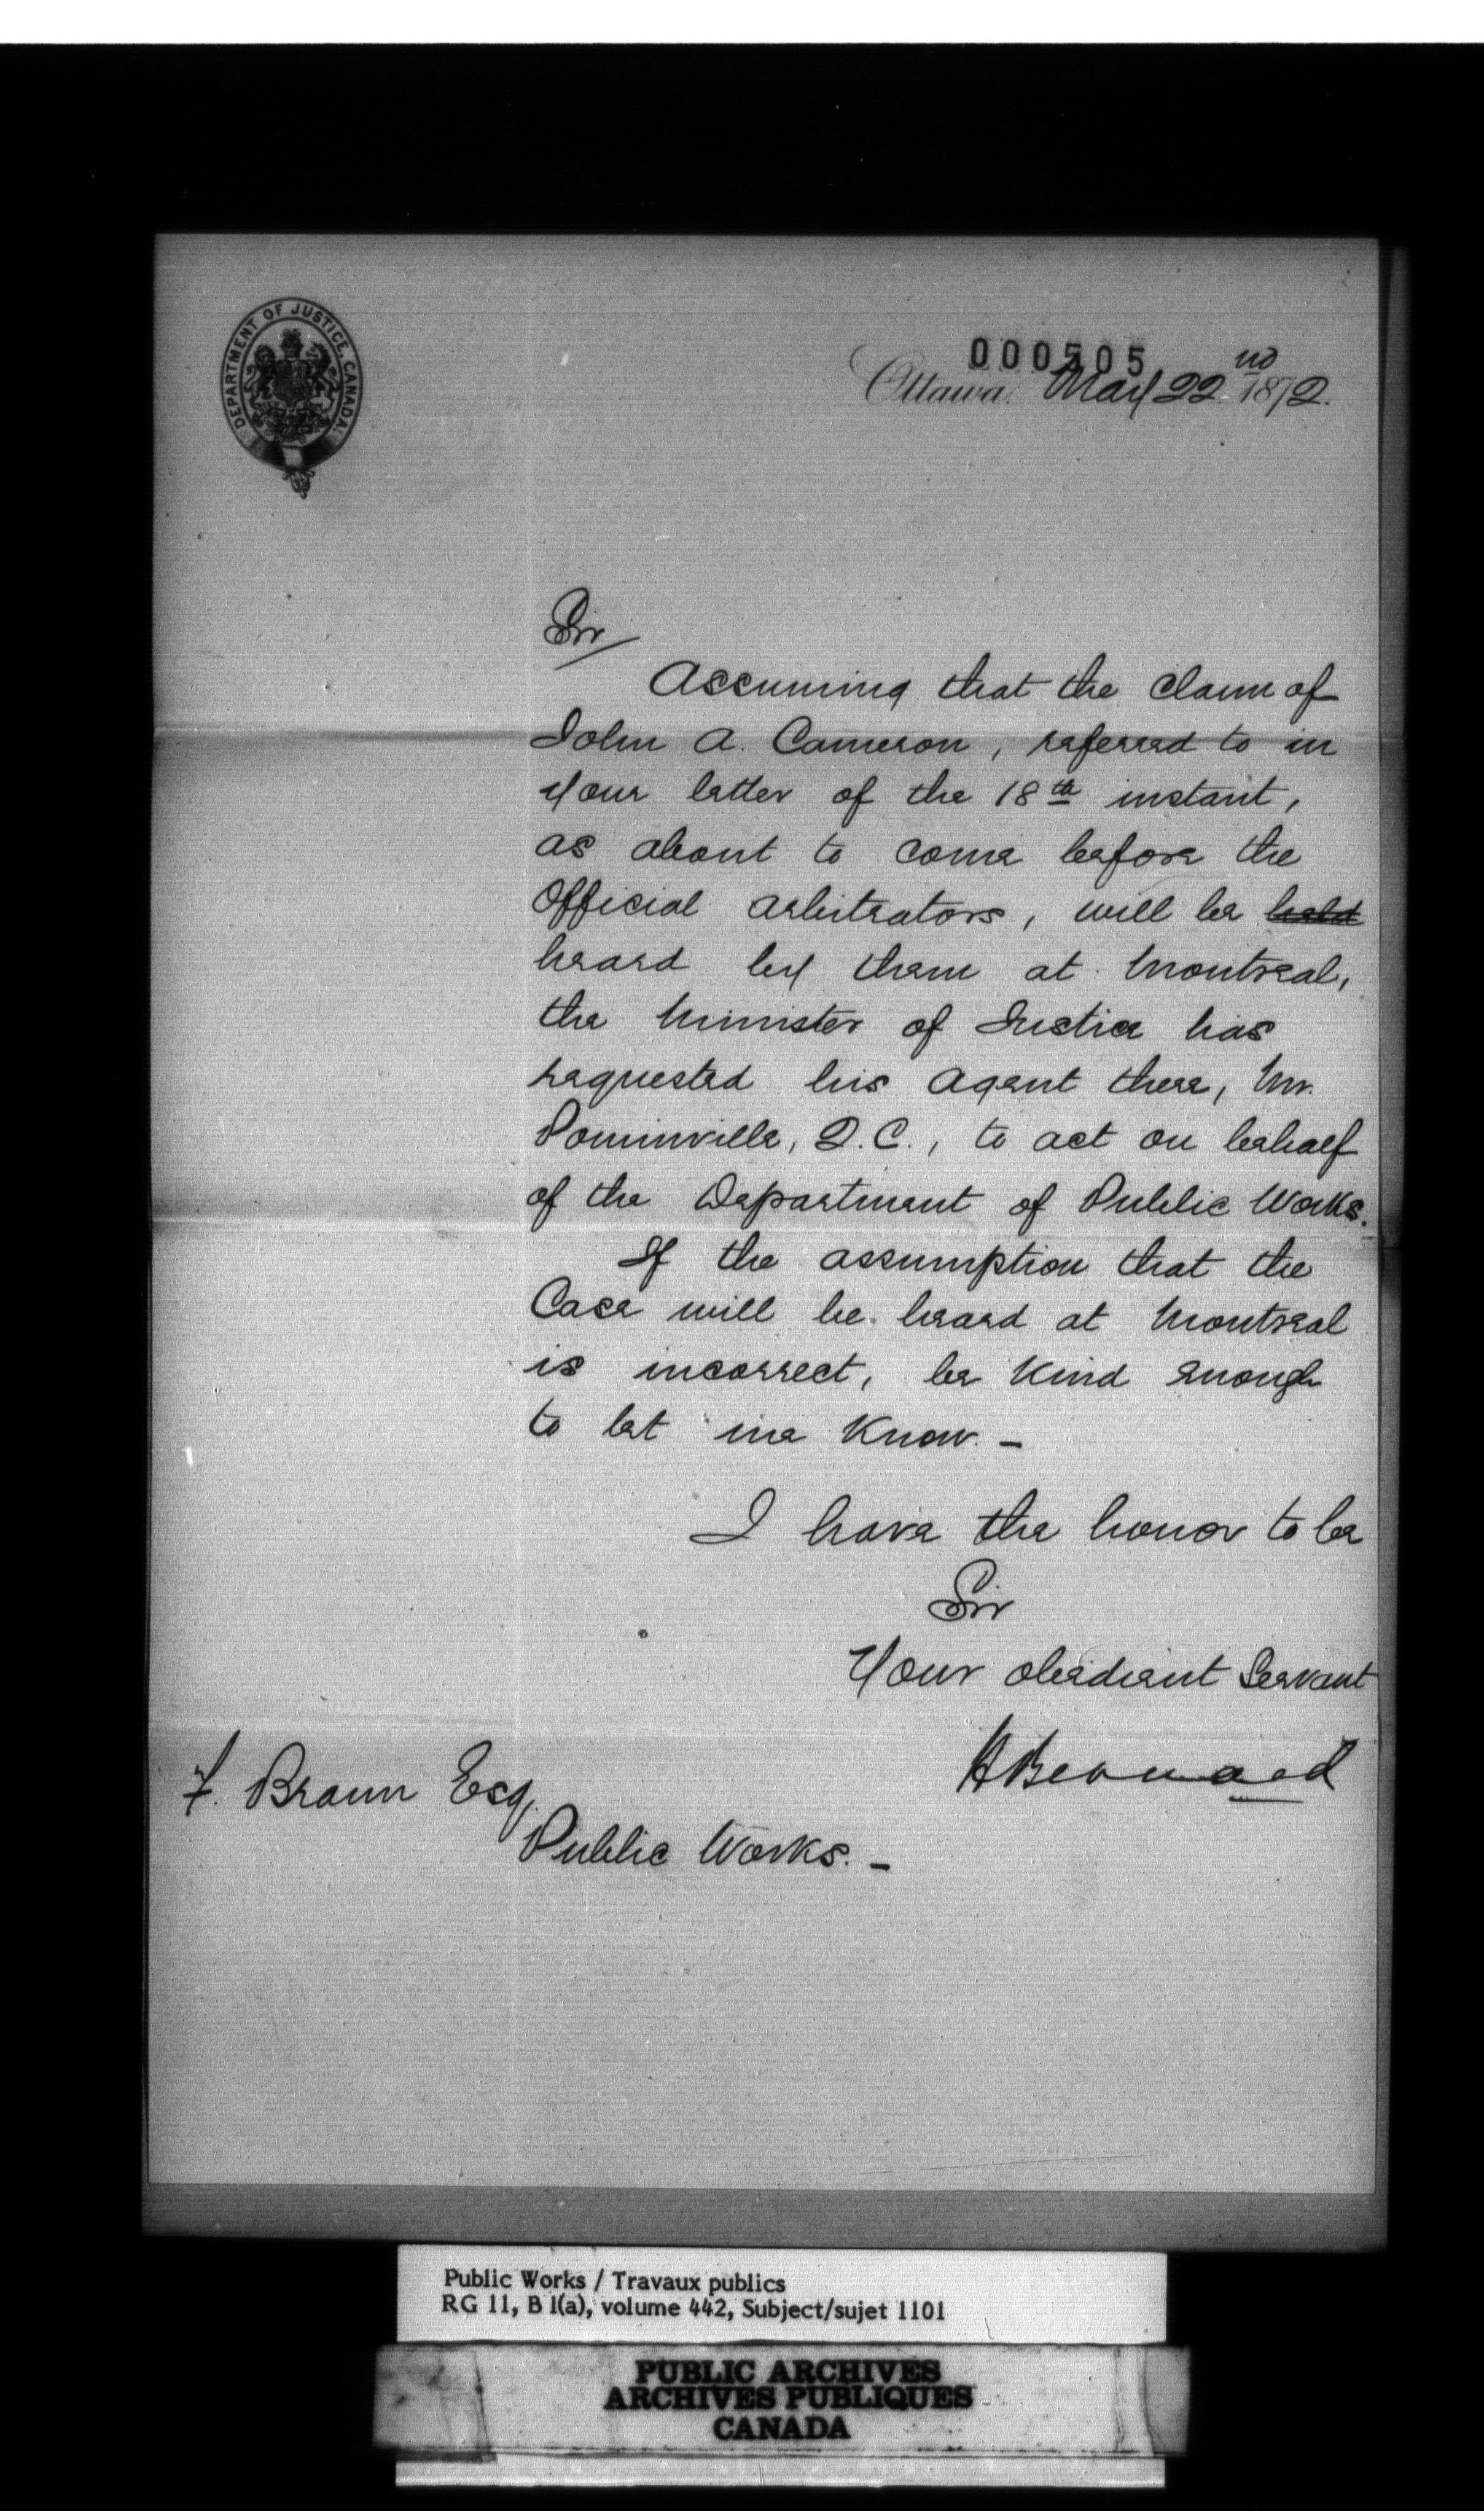 DEPARTMENT OF JUSTICE, CANADA.
000505
Ottawa, May 22nd 1872.
Sir
Assuming that the claim of
John A. Cameron, referred to in
your letter of the 18th instant,
as about to come before the
Official arbitrators, will be held
heard by them at Montreal,
the Minister of Justice has
requested his Agent there, Mr.
Pominville, Q.C., to act on behalf
of the Department of Public Works.
If the assumption that the
Case will be heard at Montreal
is incorrect, be kind enough
to let me know. -
I have the honor to be
Sir
Your obedient Servant
H Bernard
F. Braun Esq.
Public Works. -
Public Works / Travaux publics
RG 11, B 1(a), volume 442, Subject/sujet 1101
PUBLIC ARCHIVES
ARCHIVES PUBLIQUES
CANADA